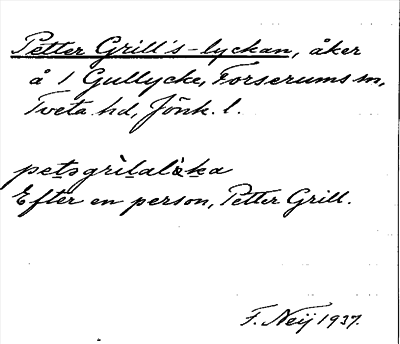 Petter Grill's-lyckan, åker
å 1 Gullycke, Forserums sn,
Tveta hd, Jönk. l.
petsgrìlalò̤ka
Efter en person, Petter Grill.
F. Neij 1937.